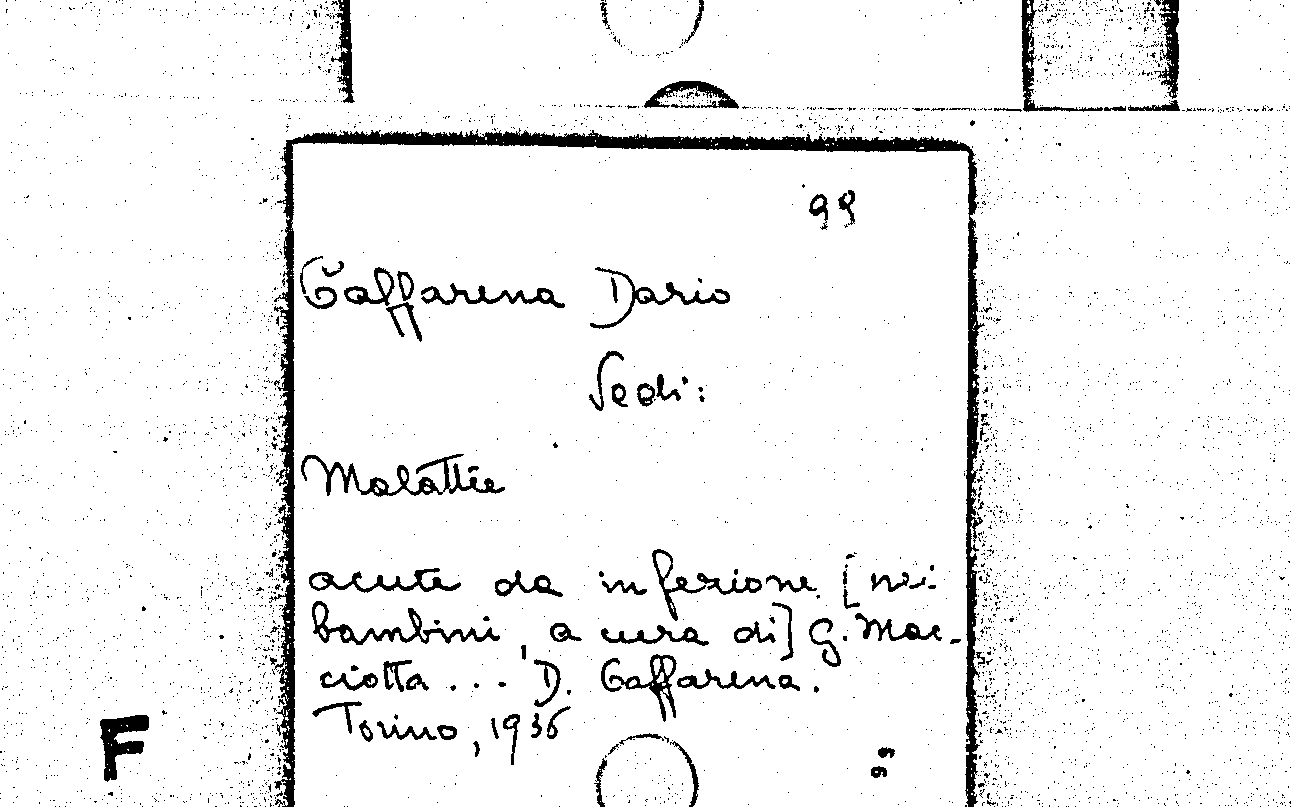 99
Gaffarena Dario
Vedi:
Malattie
acute da infezione [nei
bambini, a cura di] G. Mac-
ciotta ... D. Gaffarena.
Torino, 1936
F